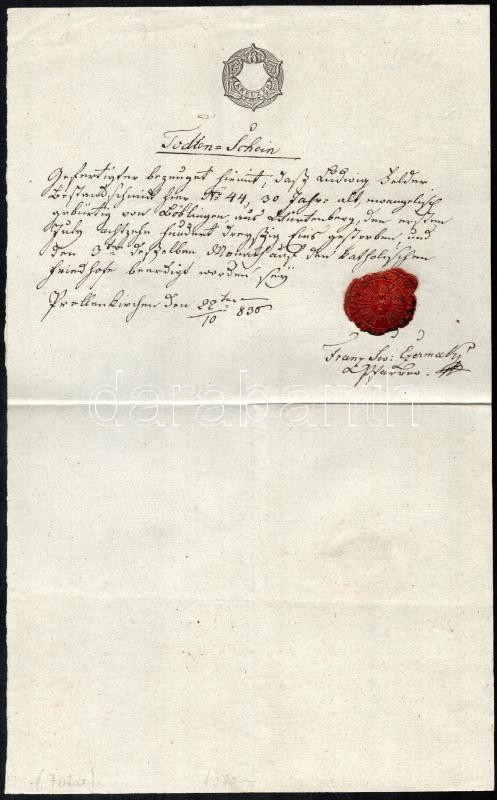 6
KREUZER
Todten=Schein
Gefertigter bezeuget hiemit, daß Ludwig Zelder
Bestandschmid hier No 44, 30 Jahre alt, evangelisch
gebürtig von Böblingen aus Würtenberg, den ersten
July achtzehn hundert dreyßig Eins gestorben, und
den 3ten desselben Monath auf den katholischen
Friedhofe beerdigt worden sey
Prellenkirchen den 22ten/10 836
Franz Sev: Czermak
Pfarrer.
darabanth